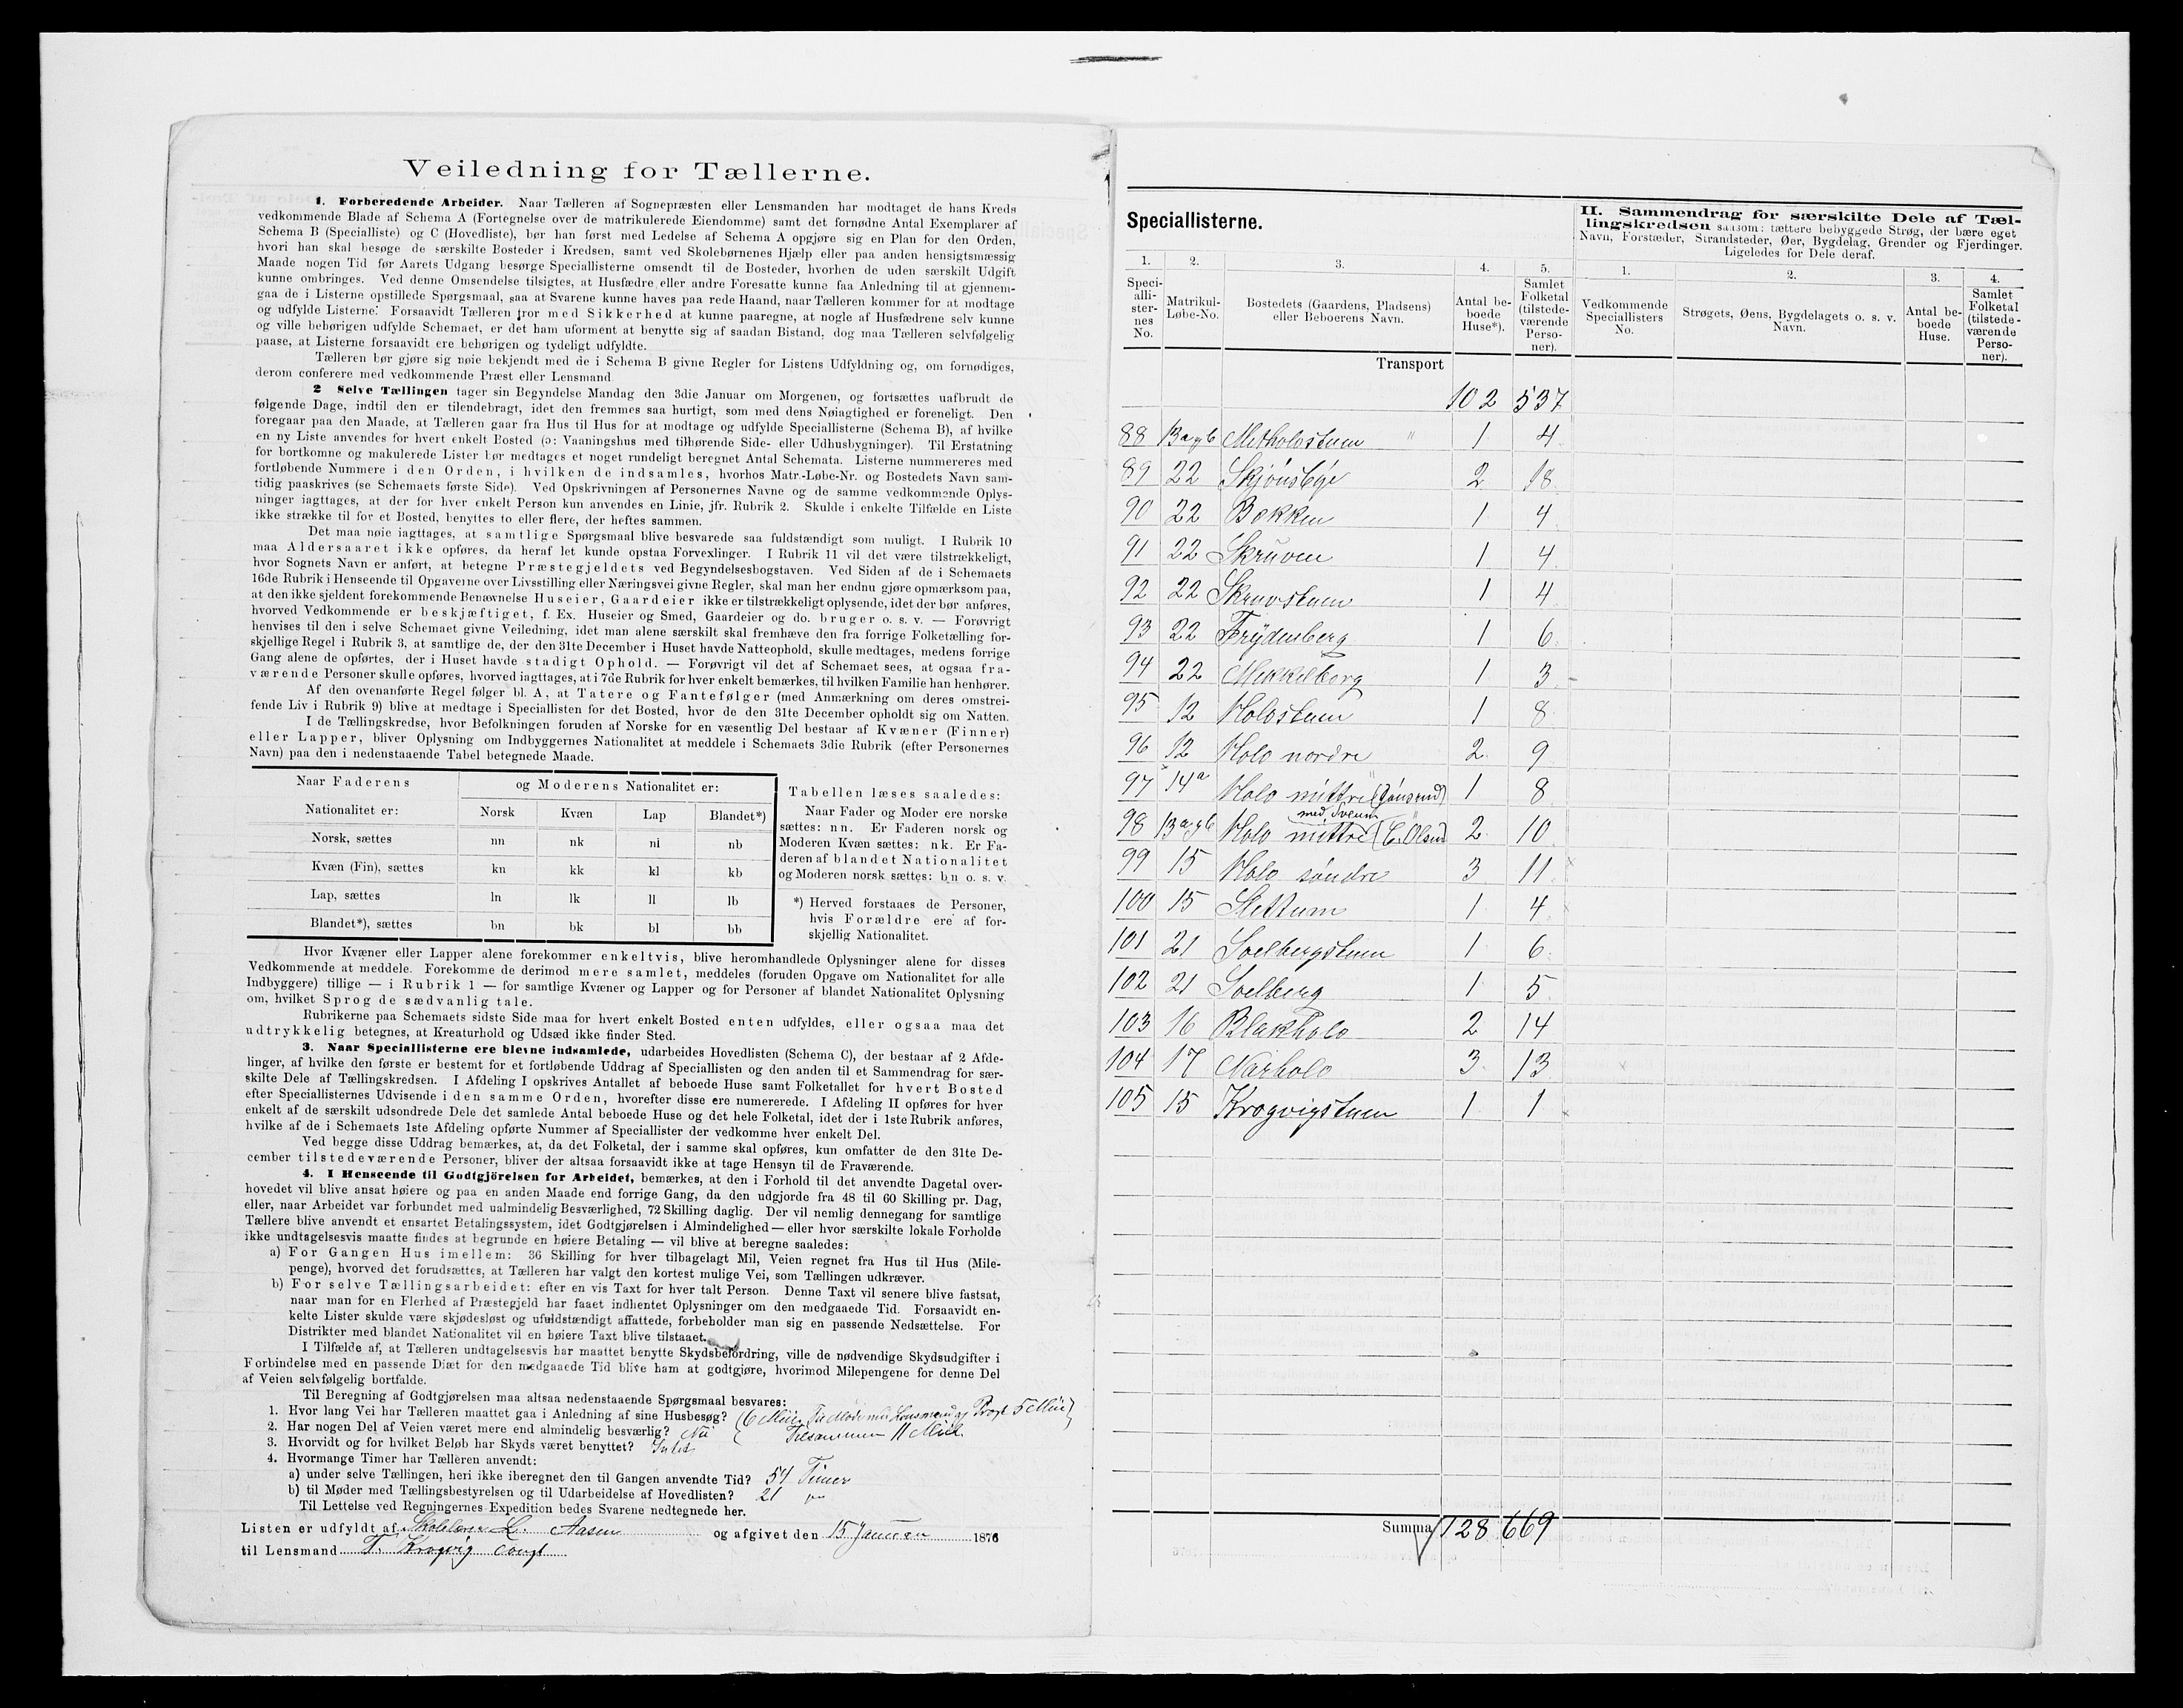 Veiledning for Tællerne.
1. Forberedende Arbeider. Naar Tælleren af Sognepræsten eller Lensmanden har modtaget de hans Kreds
vedkommende Blade af Schema A (Fortegnelse over de matrikulerede Eiendomme) samt det fornødne Antal Exemplarer af
Schema B (Specialliste) og C (Hovedliste), bør han først med Ledelse af Schema A opgjøre sig en Plan for den Orden,
hvori han skal besøge de særskilte Bosteder i Kredsen, samt ved Skolebørnenes Hjælp eller paa anden hensigtsmæssig
Maade nogen Tid før Aarets Udgang besørge Speciallisterne omsendt til de Bosteder, hvorhen de uden særskilt Udgift
kunne ombringes. Ved denne Omsendelse tilsigtes, at Husfædre eller andre Foresatte kunne faa Anledning til at gjennem-
gaa de i Listerne opstillede Spørgsmaal, saa at Svarene kunne haves paa rede Haand, naar Tælleren kommer for at modtage
og udfylde Listerne. Forsaavidt Tælleren tror med Sikkerhed at kunne paaregne, at nogle af Husfædrene selv kunne
og ville behørigen udfylde Schemaet, er det ham uforment at benytte sig af saadan Bistand, dog maa Tælleren selvfølgelig
paase, at Listerne forsaavidt ere behørigen og tydeligt udfyldte.
Tælleren bør gjøre sig nøie bekjendt med de i Schema B givne Regler for Listens Udfyldning og, om fornødiges,
derom conferere med vedkommende Præst eller Lensmand
2 Selve Tællingen tager sin Begyndelse Mandag den 3die Januar om Morgenen, og fortsættes uafbrudt de
følgende Dage, indtil den er tilendebragt, idet den fremmes saa hurtigt, som med dens Nøiagtighed er foreneligt. Den
foregaar paa den Maade, at Tælleren gaar fra Hus til Hus for at modtage og udfylde Speciallisterne (Schema B), af hvilke
en ny Liste anvendes for hvert enkelt Bosted (ɔ: Vaaningshus med tilhørende Side- eller Udhusbygninger). Til Erstatning
for bortkomne og makulerede Lister bør medtages et noget rundeligt beregnet Antal Schemata. Listerne nummereres med
fortløbende Nummere i den Orden, i hvilken de indsamles, hvorhos Matr.-Løbe-Nr. og Bostedets Navn sam-
tidig paaskrives (se Schemaets første Side). Ved Opskrivningen af Personernes Navne og de samme vedkommende Oplys-
ninger iagttages, at der for hver enkelt Person kun anvendes en Linie, jfr. Rubrik 2. Skulde i enkelte Tilfælde en Liste
ikke strække til for et Bosted, benyttes to eller flere, der heftes sammen.
Det maa nøie iagttages, at samtlige Spørgsmaal blive besvarede saa fuldstændigt som muligt. I Rubrik 10
maa Aldersaaret ikke opføres, da heraf let kunde opstaa Forvexlinger. I Rubrik 11 vil det være tilstrækkeligt,
hvor Sognets Navn er anført, at betegne Præstegjeldets ved Begyndelsesbogstaven. Ved Siden af de i Schemaets
16de Rubrik i Henseende til Opgaverne over Livsstilling eller Næringsvei givne Regler, skal man her endnu gjøre opmærksom paa,
at den ikke sjeldent forekommende Benævnelse Huseier, Gaardeier ikke er tilstrækkeligt oplysende, idet der bør anføres,
hvorved Vedkommende er beskjæftiget, f. Ex. Huseier og Smed, Gaardeier og do. bruger o. s. v. — Forøvrigt
henvises til den i selve Schemaet givne Veiledning, idet man alene særskilt skal fremhæve den fra forrige Folketælling for-
skjellige Regel i Rubrik 3, at samtlige de, der den 31te December i Huset havde Natteophold, skulle medtages, medens forrige
Gang alene de opførtes, der i Huset havde stadigt Ophold. — Forøvrigt vil det af Schemaet sees, at ogsaa fra-
værende Personer skulle opføres, hvorved iagttages, at i 7de Rubrik for hver enkelt bemærkes, til hvilken Familie han henhører.
Af den ovenanførte Regel følger bl. A, at Tatere og Fantefølger (med Anmærkning om deres omstrei-
fende Liv i Rubrik 9) blive at medtage i Speciallisten for det Bosted, hvor de den 31te December opholdt sig om Natten.
I de Tællingskredse, hvor Befolkningen foruden af Norske for en væsentlig Del bestaar af Kvæner (Finner)
eller Lapper, bliver Oplysning om Indbyggernes Nationalitet at meddele i Schemaets 3die Rubrik (efter Personernes
Navn) paa den i nedenstaaende Tabel betegnede Maade.
Naar Faderens og Moderens Nationalitet er:
Nationalitet er: Norsk Kvæn Lap Blandet*)
Norsk, sættes nn nk nl nb
Kvæn (Fin), sættes kn kk kl kb
Lap, sættes ln lk ll lb
Blandet*), sættes bn bk bl bb
Tabellen læses saaledes:
Naar Fader og Moder ere norske
sættes: nn. Er Faderen norsk og
Moderen Kvæn sættes: nk. Er Fa-
deren af blandet Nationalitet
og Moderen norsk sættes: bn o. s. v.
*) Herved forstaaes de Personer,
hvis Forældre ere af for-
skjellig Nationalitet.
Hvor Kvæner eller Lapper alene forekommer enkeltvis, blive heromhandlede Oplysninger alene for disses
Vedkommende at meddele. Forekomme de derimod mere samlet, meddeles (foruden Opgave om Nationalitet for alle
Indbyggere) tillige — i Rubrik 1 — for samtlige Kvæner og Lapper og for Personer af blandet Nationalitet Oplysning
om, hvilket Sprog de sædvanlig tale.
Rubrikerne paa Schemaets sidste Side maa for hvert enkelt Bosted enten udfyldes, eller ogsaa maa det
udtrykkelig betegnes, at Kreaturhold og Udsæd ikke finder Sted.
3. Naar Speciallisterne ere blevne indsamlede, udarbeides Hovedlisten (Schema C), der bestaar af 2 Afde-
linger, af hvilke den første er bestemt for et fortløbende Uddrag af Speciallisten og den anden til et Sammendrag for sær-
skilte Dele af Tællingskredsen. I Afdeling I opskrives Antallet af beboede Huse samt Folketallet for hvert Bosted
efter Speciallisternes Udvisende i den samme Orden, hvorefter disse ere numererede. I Afdeling II opføres for hver
enkelt af de særskilt udsondrede Dele det samlede Antal beboede Huse og det hele Folketal, idet der i 1ste Rubrik anføres,
hvilke af de i Schemaets 1ste Afdeling opførte Nummer af Speciallister der vedkomme hver enkelt Del.
Ved begge disse Uddrag bemærkes, at, da det Folketal, der i samme skal opføres, kun omfatter de den 31te De-
cember tilstedeværende Personer, bliver der altsaa forsaavidt ikke at tage Hensyn til de Fraværende.
4. I Henseende til Godtgjörelsen for Arbeidet, bemærkes, at den i Forhold til det anvendte Dagetal over-
hovedet vil blive ansat høiere og paa en anden Maade end forrige Gang, da den udgjorde fra 48 til 60 Skilling pr. Dag,
eller, naar Arbeidet var forbundet med ualmindelig Besværlighed, 72 Skilling daglig. Der vil nemlig dennegang for samtlige
Tællere blive anvendt et ensartet Betalingssystem, idet Godtgjørelsen i Almindelighed — eller hvor særskilte lokale Forholde
ikke undtagelsesvis maatte findes at begrunde en høiere Betaling — vil blive at beregne saaledes:
a) For Gangen Hus imellem: 36 Skilling for hver tilbagelagt Mil, Veien regnet fra Hus til Hus (Mile-
penge), hvorved det forudsættes, at Tælleren har valgt den kortest mulige Vei, som Tællingen udkræver.
b) For selve Tællingsarbeidet: efter en vis Taxt for hver talt Person. Denne Taxt vil senere blive fastsat,
naar man for en Flerhed af Præstegjeld har faaet indhentet Oplysninger om den medgaaede Tid. Forsaavidt en-
kelte Lister skulde være skjødesløst og ufuldstændigt affattede, forbeholder man sig en passende Nedsættelse. For
Distrikter med blandet Nationalitet vil en høiere Taxt blive tilstaaet.
I Tilfælde af, at Tælleren undtagelsesvis har maattet benytte Skydsbefordring, ville de nødvendige Skydsudgifter i
Forbindelse med en passende Diæt for den medgaaede Tid blive ham at godtgjøre, hvorimod Milepengene for denne Del
af Veien selvfølgelig bortfalde.
Til Beregning af Godtgjørelsen maa altsaa nedenstaaende Spørgsmaal besvares:
1. Hvor lang Vei har Tælleren maattet gaa i Anledning af sine Husbesøg? (6 Mile,
2. Har nogen Del af Veien været mere end almindelig besværlig? Nei Tilsammen 11 Mil.
3. Hvorvidt og for hvilket Beløb har Skyds været benyttet? Intet
4. Hvormange Timer har Tælleren anvendt:
a) under selve Tællingen, heri ikke iberegnet den til Gangen anvendte Tid? 54 Timer
b) til Møder med Tællingsbestyrelsen og til Udarbeidelse af Hovedlisten? 21
Til Lettelse ved Regningernes Expedition bedes Svarene nedtegnede her.
Listen er udfyldt af Skolelærer L. Aasen og afgivet den 15 Januar 1876
til Lensmand T. Krogvig const
Speciallisterne.
II. Sammendrag for særskilte Dele af Tæl-
lingskredsen saasom: tættere bebyggede Strøg, der bære eget
Navn, Forstæder, Strandsteder, Øer, Bygdelag, Grender og Fjerdinger.
Ligeledes for Dele deraf.
1. 2. 3. 4. 5. 1. 2. 3. 4.
Speci-alli-ster-nes No. Matrikul-Løbe-No. Bostedets (Gaardens, Pladsens) eller Beboerens Navn. Antal be-boede Huse*). Samlet Folketal (tilstede-værende Perso-ner). Vedkommende Speciallisters No. Strøgets, Øens, Bygdelagets o. s. v. Navn. Antal be-boede Huse. Samlet Folketal (tilstede-værende Perso-ner).
Transport
102 537
88 13 a, b Metholostuen " 1 4
89 22 Skjønsbye 2 18
90 22 Bækken 1 4
91 22 Skruven 1 4
92 22 Skruvstuen 1 4
93 22 Frydenberg 1 6
94 22 Mekkelborg 1 3
95 12 Holostuen 1 8
96 12 Holo nordre 2 9
97 14a Holo mittre (Jönsrud) 1 8
med Sveum
98 13 a, b Holo mittre (C. Olsen) 2 10
99 15 Holo søndre 3 11
100 15 Slettum 1 4
101 21 Soelbergstuen 1 6
102 21 Soelberg 1 5
103 16 Blakholo 2 14
104 17 Nærholo 3 13
105 15 Krogvigstuen 1 1
Summa 128 669